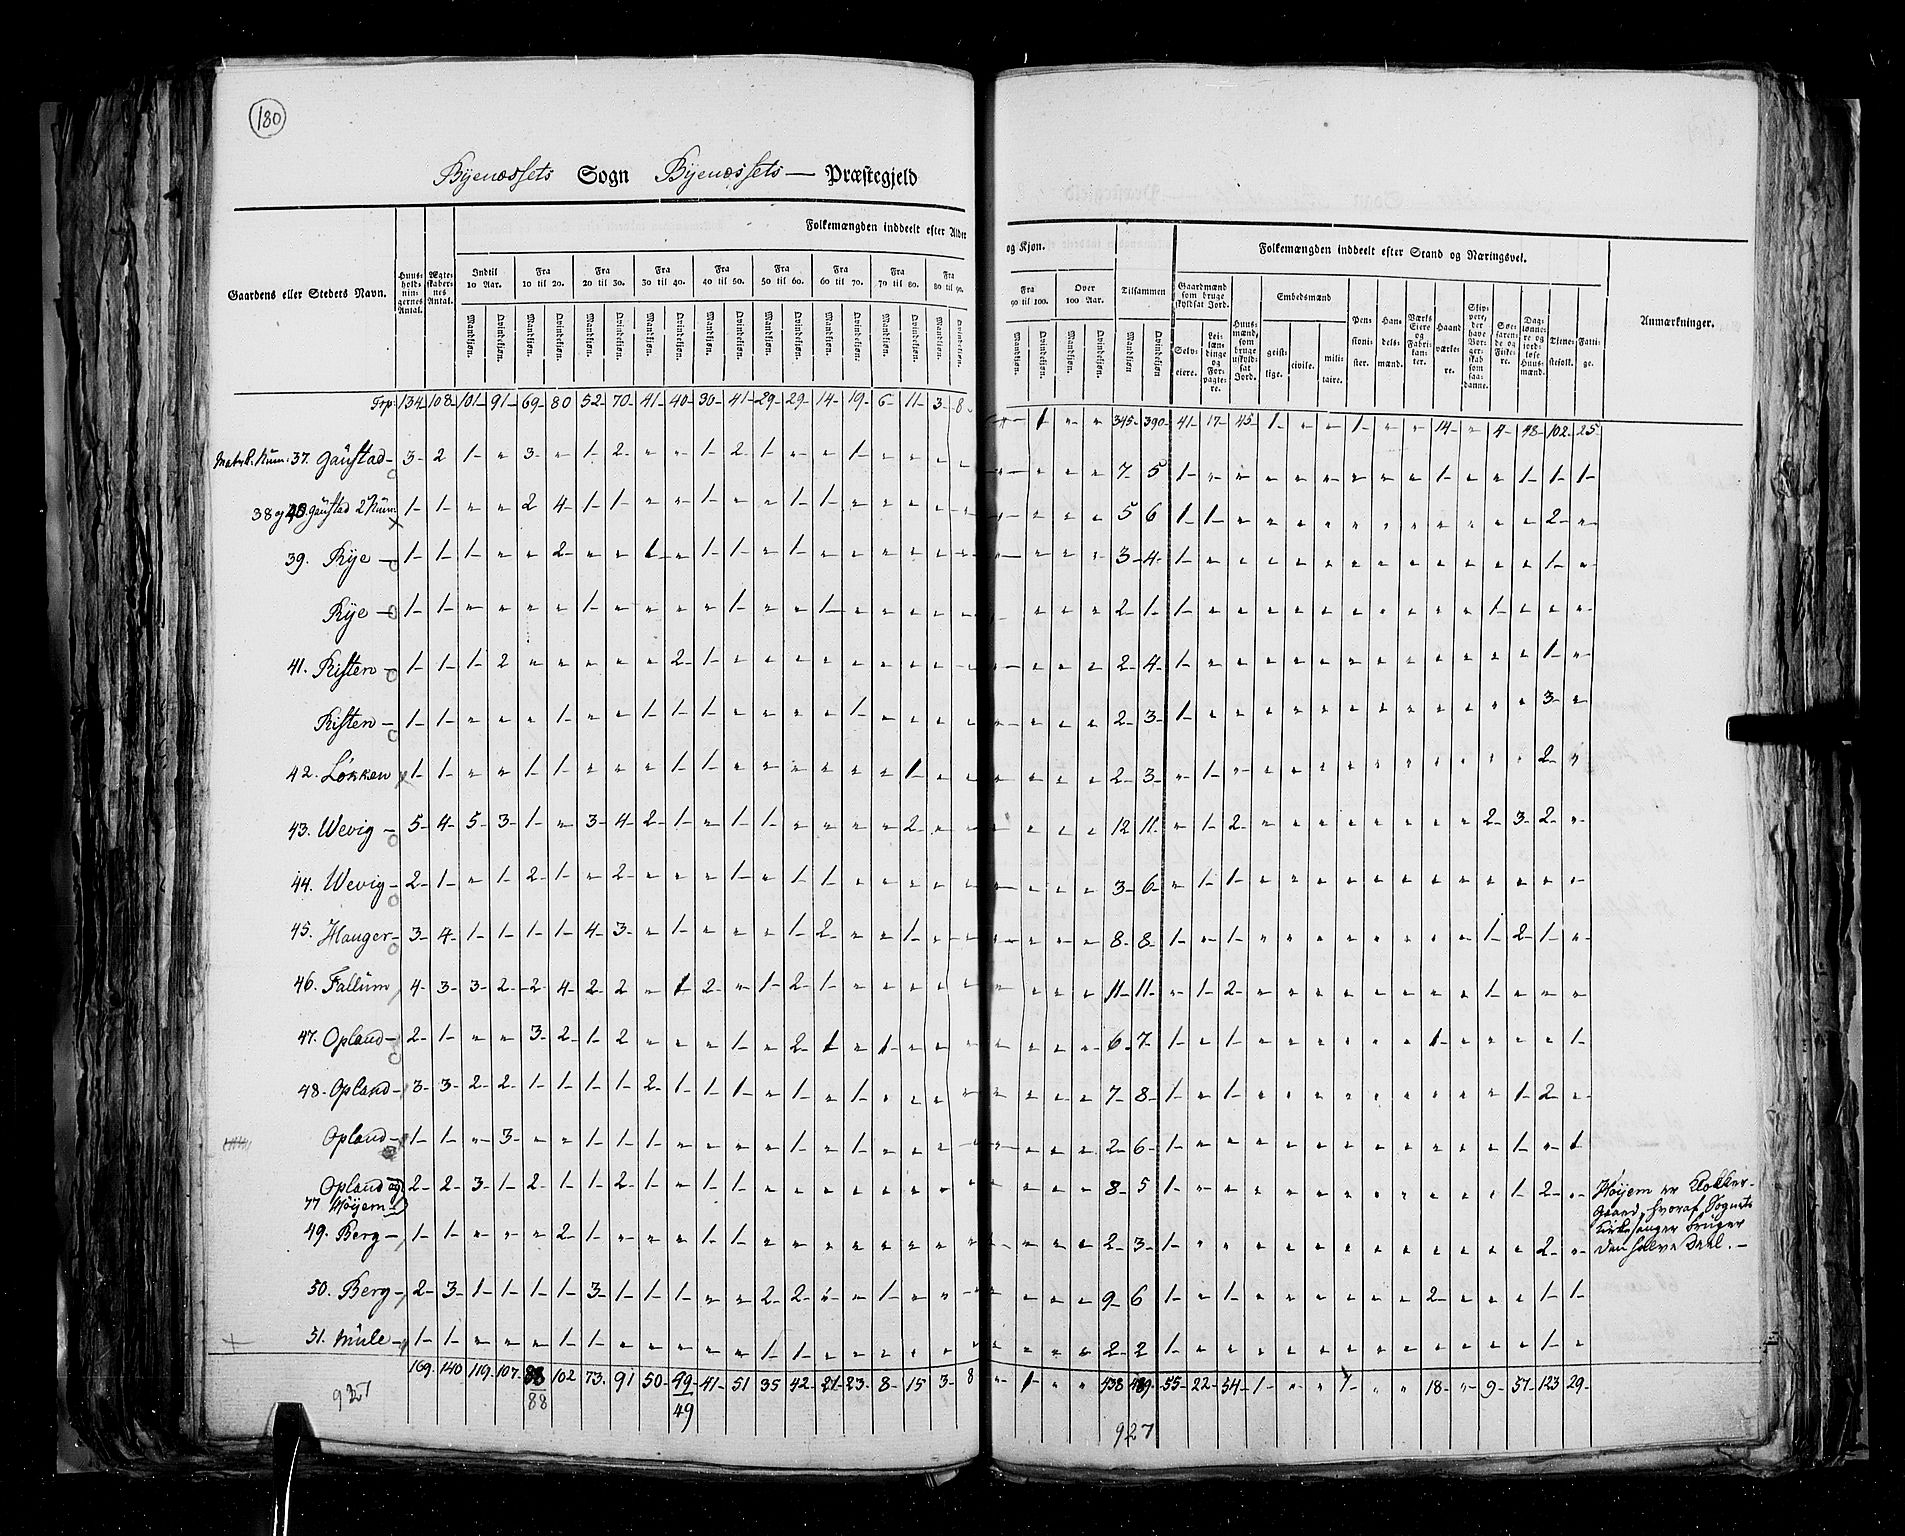 180
Byenæssets Sogn Byenæssets — Præstegjeld
Folkemængden inddeelt efter Alder og Kjøn.
Folkemængden inddeelt efter Stand og Næringsvei.
Gaardens eller Stedets Navn.
Huusholdningernes Antal.
Ægteskabernes Antal.
Indtil 10 Aar.
Fra 10 til 20.
Fra 20 til 30.
Fra 30 til 40.
Fra 40 til 50.
Fra 50 til 60.
Fra 60 til 70.
Fra 70 til 80.
Fra 80 til 90.
Fra 90 til 100.
Over 100 Aar.
Tilsammen
Mandkjøn. Qvindekjøn.
Gaardmænd som bruge skyldsat Jord.
Selveiere.
Leilændinge og Forpagtere.
Huusmænd, som bruge uskyldsat Jord.
Embedsmænd
geistlige. civile. militaire.
Pensionister.
Handelsmænd.
Værks Eiere og Fabrikanter.
Haandværkere.
Skippere, der have Borgerskab som saadanne.
Søefarende og Fiskere.
Daglønnere og jordløse Huusmænd.
Tjenestefolk.
Fattige.
Anmærkninger.
Trp: 134 108 101 91 69 80 52 70 41 40 30 41 29 29 14 19 6 11 3 8 „ 1 „ „ 345 390 41 17 45 1 „ „ 1 „ „ 14 „ 4 48 102 25
Matrk. Num. 37. Gaustad 3 2 1 „ 3 „ 1 2 „ „ 1 2 1 „ „ 1 „ „ „ „ „ „ „ „ 7 5 1 „ „ „ „ „ „ „ „ 1 „ „ 1 1 1
38 og 40. Gaustad 2 Num. 1 1 „ „ 2 4 1 1 „ „ 1 „ „ 1 1 „ „ „ „ „ „ „ „ „ 5 6 1 1 „ „ „ „ „ „ „ „ „ „ „ 2 „
39. Rye 1 1 1 „ „ 2 „ „ 1 „ 1 1 „ 1 „ „ „ „ „ „ „ „ „ „ 3 4 1 „ „ „ „ „ „ „ „ „ „ „ „ 1 „
Rye 1 1 „ „ „ „ 1 „ „ „ „ 1 „ „ 1 „ „ „ „ „ „ „ „ „ 2 1 1 „ „ „ „ „ „ „ „ „ „ 1 „ „ „
41. Risten 1 1 1 2 „ „ „ „ „ 2 1 „ „ „ „ „ „ „ „ „ „ „ „ „ 2 4 1 „ „ „ „ „ „ „ „ „ „ „ „ 1 „
Risten 1 1 „ „ „ 1 „ „ 1 1 1 „ „ „ „ 1 „ „ „ „ „ „ „ „ 2 3 1 „ „ „ „ „ „ „ „ „ „ „ „ 3 „
42. Løkken 1 1 „ „ 1 1 „ „ „ 1 1 „ „ „ „ „ „ 1 „ „ „ „ „ „ 2 3 „ 1 „ „ „ „ „ „ „ „ „ „ „ 2 „
43. Wevig 5 4 5 3 1 „ 3 4 2 1 „ 1 1 „ „ „ „ 2 „ „ „ „ „ „ 12 11 „ 1 2 „ „ „ „ „ „ „ „ 2 3 2 „
44. Wevig 2 1 „ 1 2 1 „ 2 „ „ „ 1 „ 1 1 „ „ „ „ „ „ „ „ „ 3 6 „ 1 1 „ „ „ „ „ „ „ „ „ „ „ „
45. Hanger 3 4 1 1 1 1 4 3 „ 1 „ „ „ 1 2 „ „ 1 „ „ „ „ „ „ 8 8 1 „ 1 „ „ „ „ „ „ „ „ 1 2 1 „
46. Fallum 4 3 3 2 2 4 2 2 „ 1 2 „ 1 2 1 „ „ „ „ „ „ „ „ „ 11 11 „ 1 2 „ „ „ „ „ „ „ „ 1 „ „ „
47. Opland 2 1 „ „ 3 2 1 2 „ „ „ 1 „ 2 1 „ 1 „ „ „ „ „ „ „ 6 7 1 „ 1 „ „ „ „ „ „ 1 „ „ „ „ 1
48. Opland 3 3 2 2 1 1 1 1 2 1 1 1 „ 1 „ 1 „ „ „ „ „ „ „ „ 7 8 1 „ 1 „ „ „ „ „ „ „ „ „ 1 2 „
Opland 1 1 „ 3 „ „ 1 1 1 „ „ „ „ 1 „ 1 „ „ „ „ „ „ „ „ 2 6 1 „ „ „ „ „ „ „ „ „ „ „ 1 „ 1
Opland og
77 Høyem 2 2 3 1 2 1 1 2 1 „ 1 1 „ „ „ „ „ „ „ „ „ „ „ „ 8 5 1 „ „ „ „ „ „ „ „ „ „ „ 1 2 „
Høyem er Klokker-
Gaard, hvoraf Sognets
Kirkesanger bruger
den halve Deel. —
49. Berg 1 1 „ „ „ 2 1 „ „ „ 1 1 „ „ „ „ „ „ „ „ „ „ „ „ 2 3 1 „ „ „ „ „ „ „ „ „ „ „ „ 2 „
50. Berg 2 3 1 1 1 1 3 1 1 1 „ „ 2 2 „ „ 1 „ „ „ „ „ „ „ 9 6 1 „ 1 „ „ „ „ „ „ 2 „ „ „ 1 1
51. Mule 1 1 „ „ „ 1 1 „ „ „ „ „ 1 1 „ „ „ „ „ „ „ „ „ „ 2 2 1 „ „ „ „ „ „ „ „ „ „ „ „ 1 „
169 140 119 107 88 102 73 91 50 49 41 51 35 42 21 23 8 15 3 8 „ 1 „ „ 438 489 55 22 54 1 „ „ 1 „ „ 18 „ 9 57 123 29
88 49
927 927